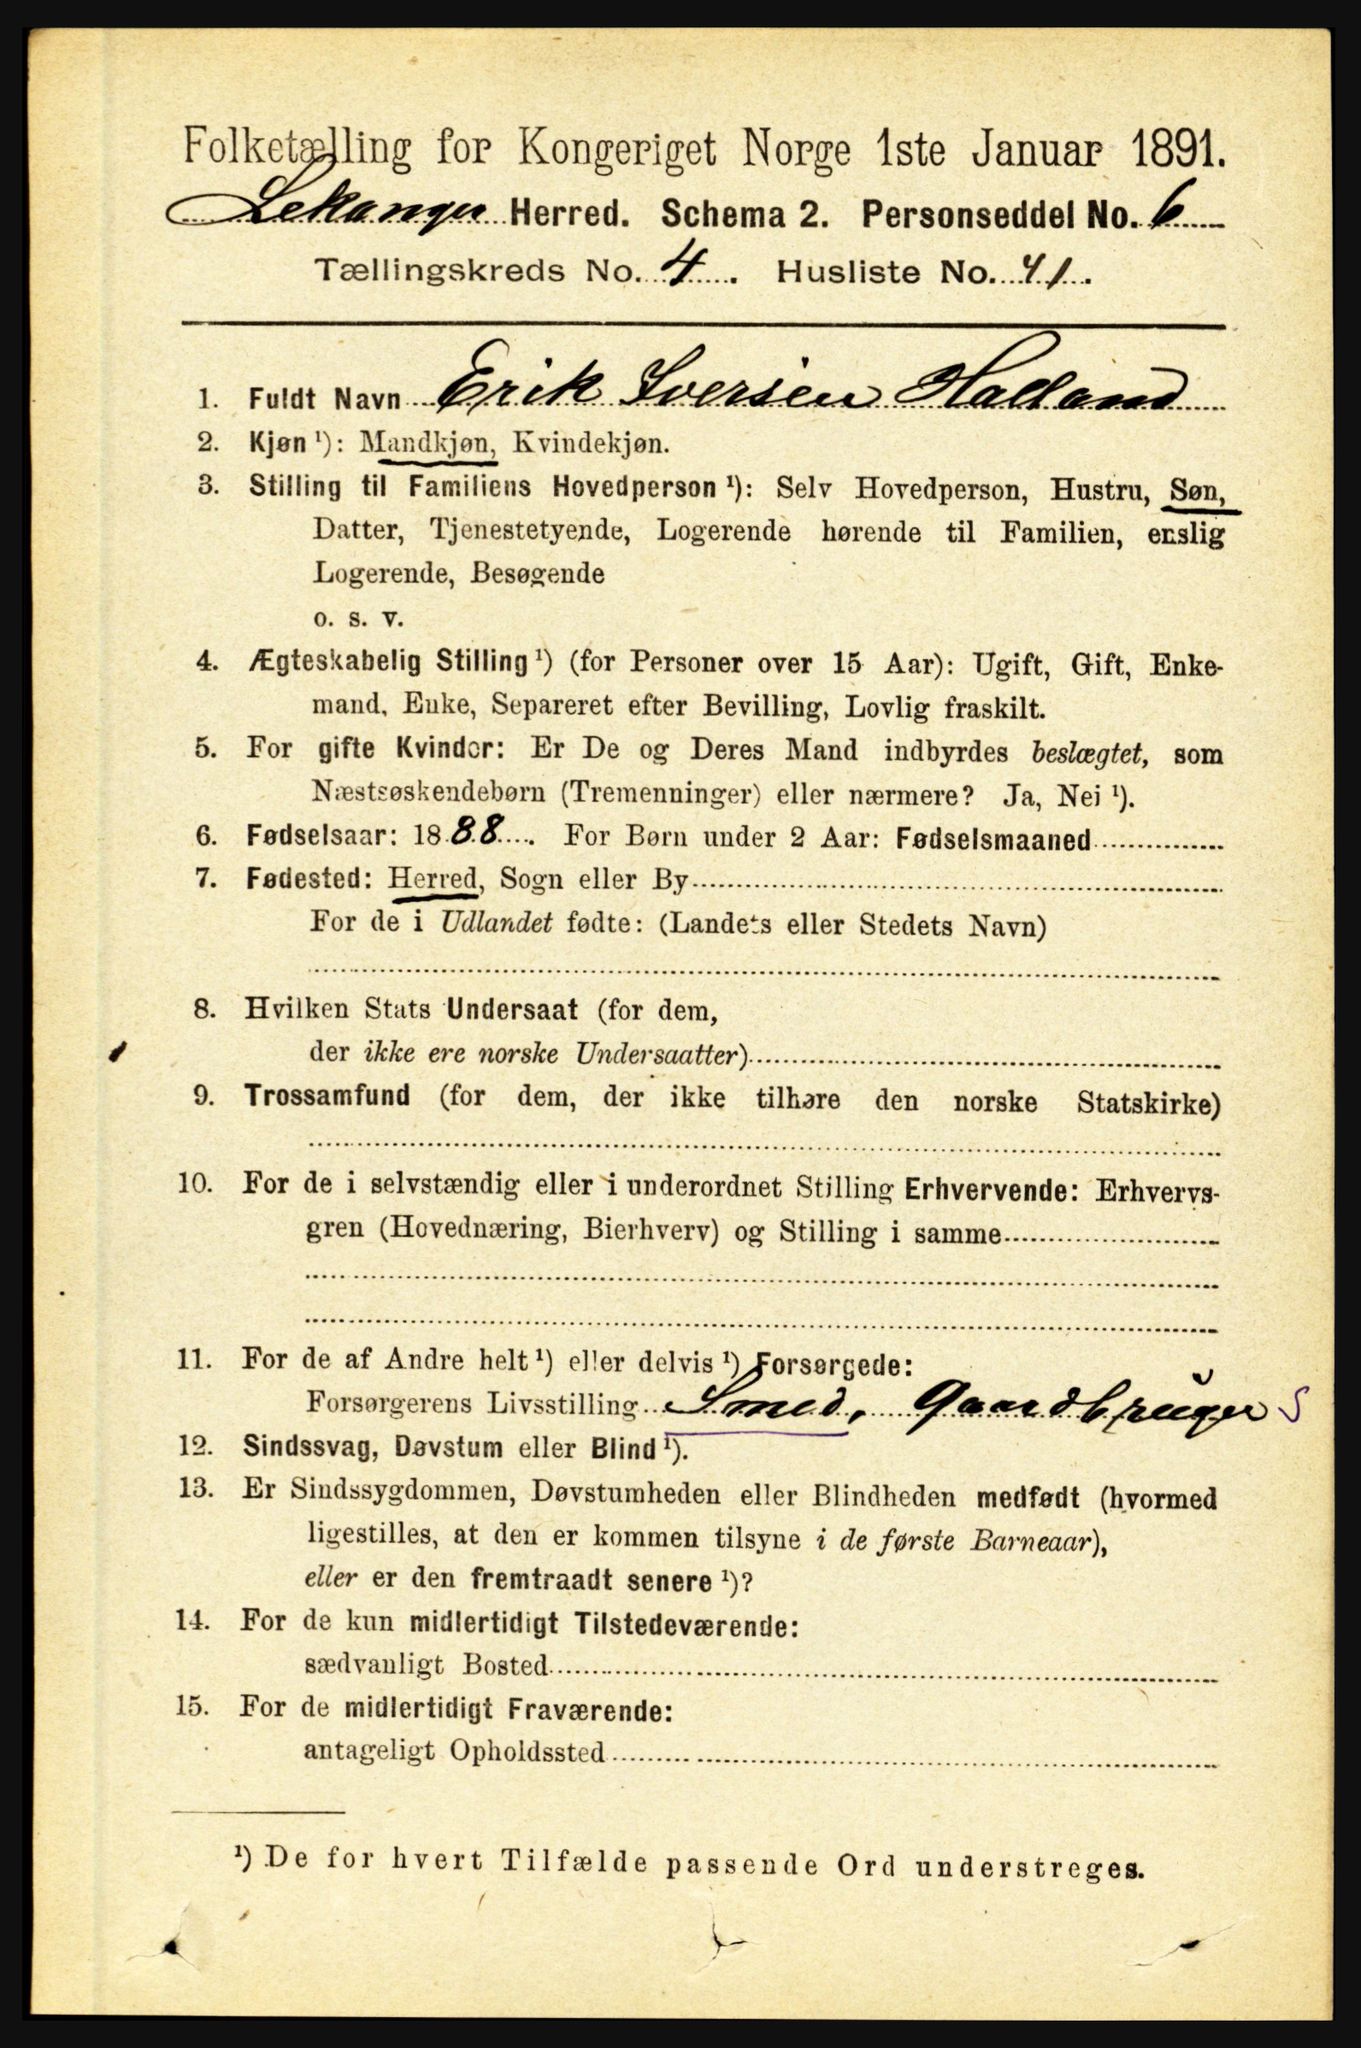 Folketælling for Kongeriget Norge 1ste Januar 1891.
Lekanger Herred. Schema 2. Personseddel No. 6
Tællingskreds No. 4. Husliste No. 41.
1. Fuldt Navn Erik Iversen Halland
2. Kjøn ¹): Mandkjøn, Kvindekjøn.
3. Stilling til Familiens Hovedperson ¹): Selv Hovedperson, Hustru, Søn,
Datter, Tjenestetyende, Logerende hørende til Familien, enslig
Logerende, Besøgende
o. s. v.
4. Ægteskabelig Stilling ¹) (for Personer over 15 Aar): Ugift, Gift, Enke-
mand, Enke, Separeret efter Bevilling, Lovlig fraskilt.
5. For gifte Kvinder: Er De og Deres Mand indbyrdes beslægtet, som
Næstsøskendebørn (Tremenninger) eller nærmere? Ja, Nei ¹).
6. Fødselsaar: 1888. For Børn under 2 Aar: Fødselsmaaned
7. Fødested: Herred, Sogn eller By
For de i Udlandet fødte: (Landets eller Stedets Navn)
8. Hvilken Stats Undersaat (for dem,
der ikke ere norske Undersaatter)
9. Trossamfund (for dem, der ikke tilhøre den norske Statskirke)
10. For de i selvstændig eller i underordnet Stilling Erhvervende: Erhvervs-
gren (Hovednæring, Bierhverv) og Stilling i samme
11. For de af Andre helt ¹) eller delvis ¹) Forsørgede:
Forsørgerens Livsstilling Smed, Gaardbruger S
12. Sindssvag, Døvstum eller Blind ¹).
13. Er Sindssygdommen, Døvstumheden eller Blindheden medfødt (hvormed
ligestilles, at den er kommen tilsyne i de første Barneaar),
eller er den fremtraadt senere ¹)?
14. For de kun midlertidigt Tilstedeværende:
sædvanligt Bosted
15. For de midlertidigt Fraværende:
antageligt Opholdssted
¹) De for hvert Tilfælde passende Ord understreges.